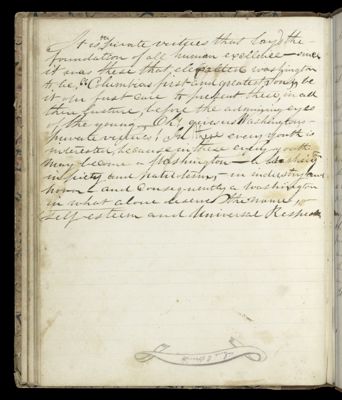 It is private virtues that lay'd the
foundation of all human excellence - since
it was these that elevated washington
to be "Columbias first and greatest son" be
it our first care to present these, in all
their lustre, before the admiring eyes
of the young - Oh! give us Washingtons
private virtues! In every youth is
interested, because in these every youth
may become a Washington - a Washington
in piety and patriotism, - in industry and
honor - and consequently a washington
in what alone deserves the name,
self esteem and Universal Respect